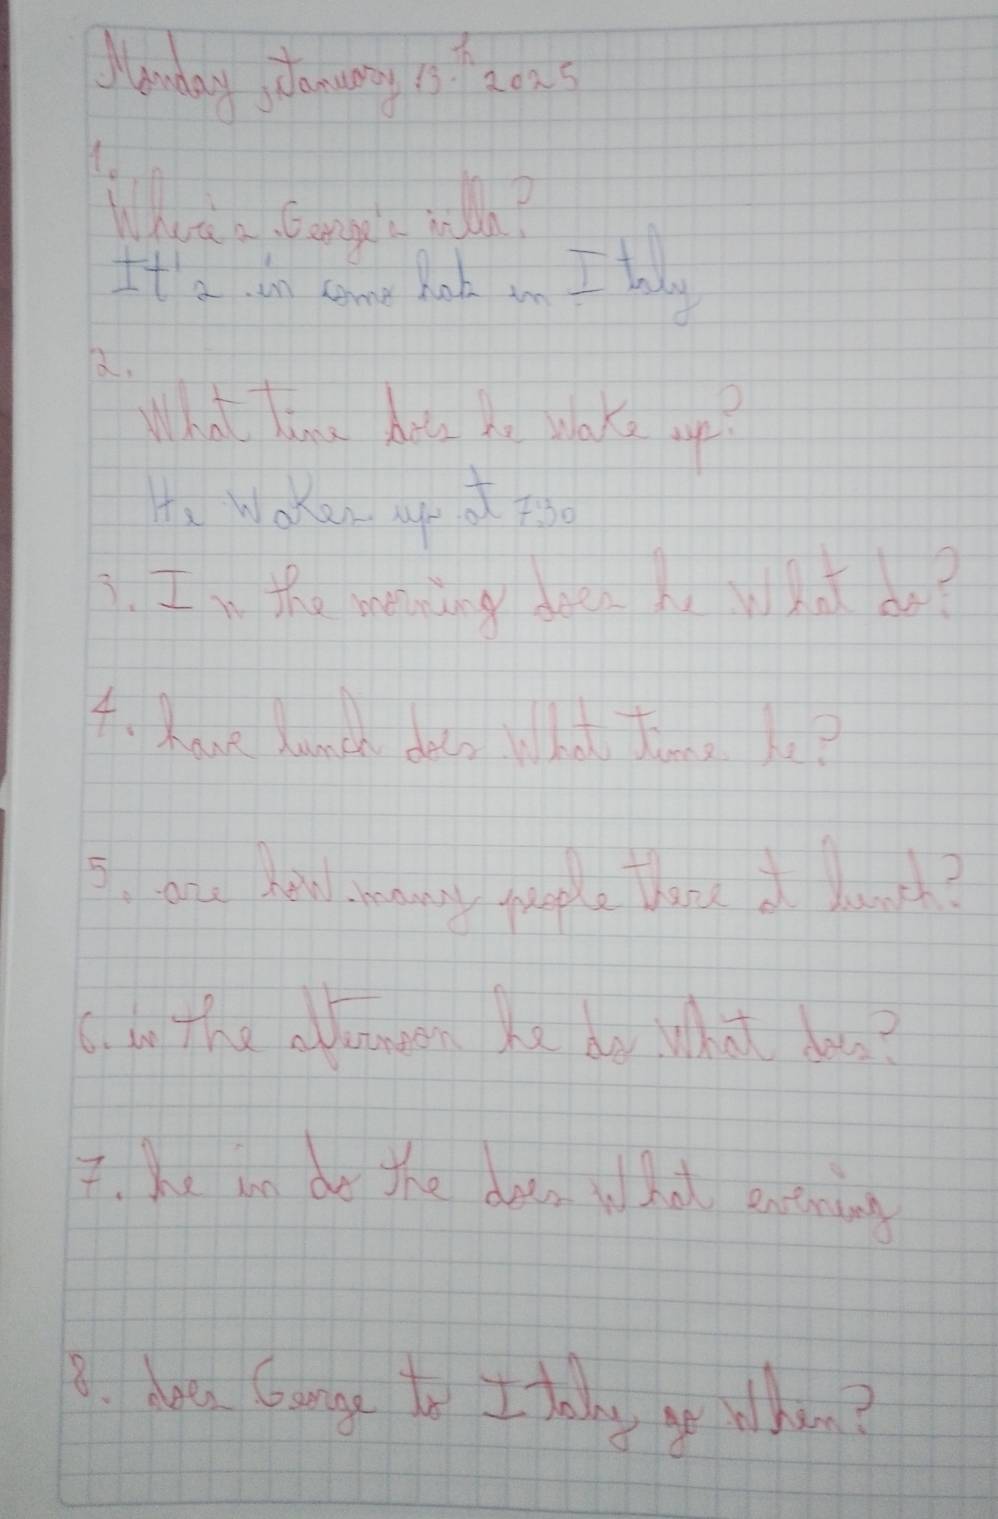 Monday, January 13.th 2025
1.
Where's George's villa?
It's in como hok in Italy
2.
What time does he wake up?
He wakes up at 7:30
3. In the morning does he what do?
4. have lunch does what time he?
5. are how many people there at lunch?
6. in the afternoon he do what does?
7. he in do the does what evening
8. does George to Italy go when?